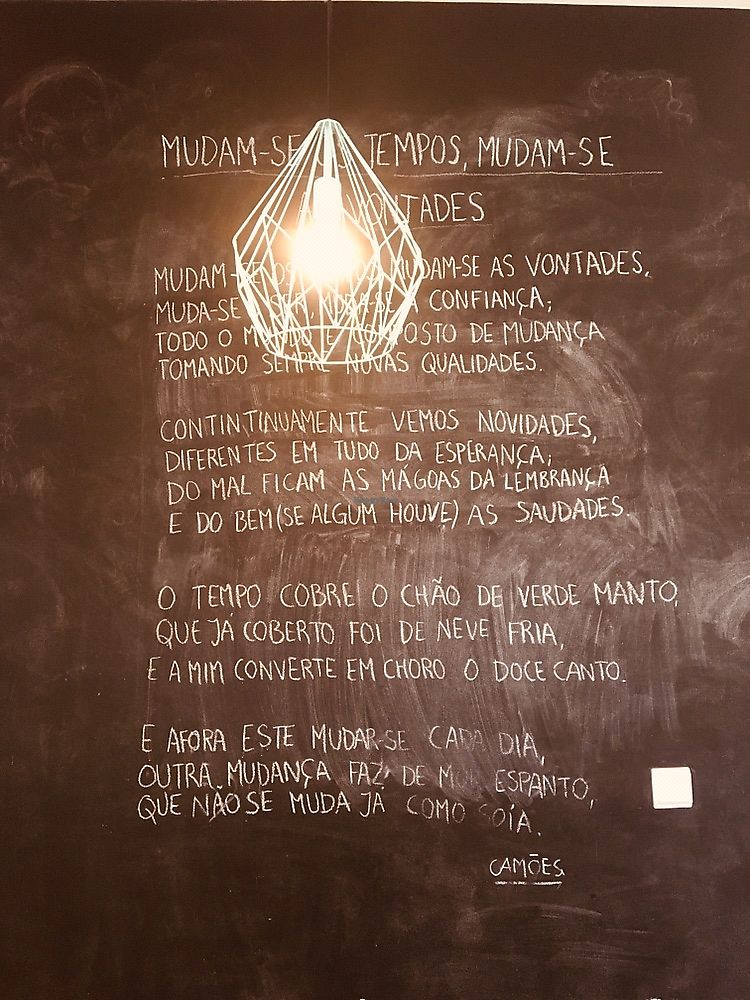 MUDAM-SE OS TEMPOS, MUDAM-SE
AS VONTADES
MUDAM-SE OS TEMPOS, MUDAM-SE AS VONTADES,
MUDA-SE O SER, MUDA-SE A CONFIANÇA;
TODO O MUNDO É COMPOSTO DE MUDANÇA
TOMANDO SEMPRE NOVAS QUALIDADES.
CONTINTINUAMENTE VEMOS NOVIDADES,
DIFERENTES EM TUDO DA ESPERANÇA;
DO MAL FICAM AS MÁGOAS DA LEMBRANÇA
E DO BEM (SE ALGUM HOUVE) AS SAUDADES.
O TEMPO COBRE O CHÃO DE VERDE MANTO,
QUE JÁ COBERTO FOI DE NEVE FRIA,
E A MIM CONVERTE EM CHORO O DOCE CANTO.
E AFORA ESTE MUDAR-SE CADA DIA,
OUTRA MUDANÇA FAZ DE MOR ESPANTO,
QUE NÃO SE MUDA JÁ COMO SOÍA.
CAMÕES